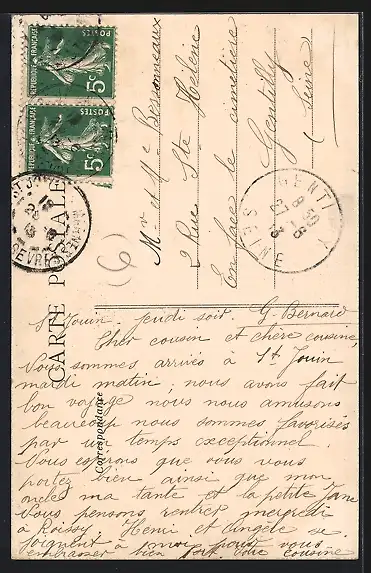 CARTE POSTALE
Correspondance
REPUBLIQUE FRANÇAISE
POSTES
5c
REPUBLIQUE FRANÇAISE
POSTES
5c
GENTILLY
SEINE
Mr et Me Bessonneaux
2 Rue Ste Hélène
En face le cimetière
Gentilly
(Seine)
(6)
St Jouin jeudi soir G. Bernard
Cher cousin et chère cousine,
Nous sommes arrivés à St Jouin
mardi matin; nous avons fait
bon voyage nous nous amusons
beaucoup nous sommes favorisés
par un temps exceptionnel.
Nous espérons que vous vous
portez bien ainsi que mon
oncle ma tante et la petite Jane
Nous pensons rentrer mercredi
à Roissy Henri et Angèle se
joignent à moi pour vous
embrasser bien fort Votre cousine